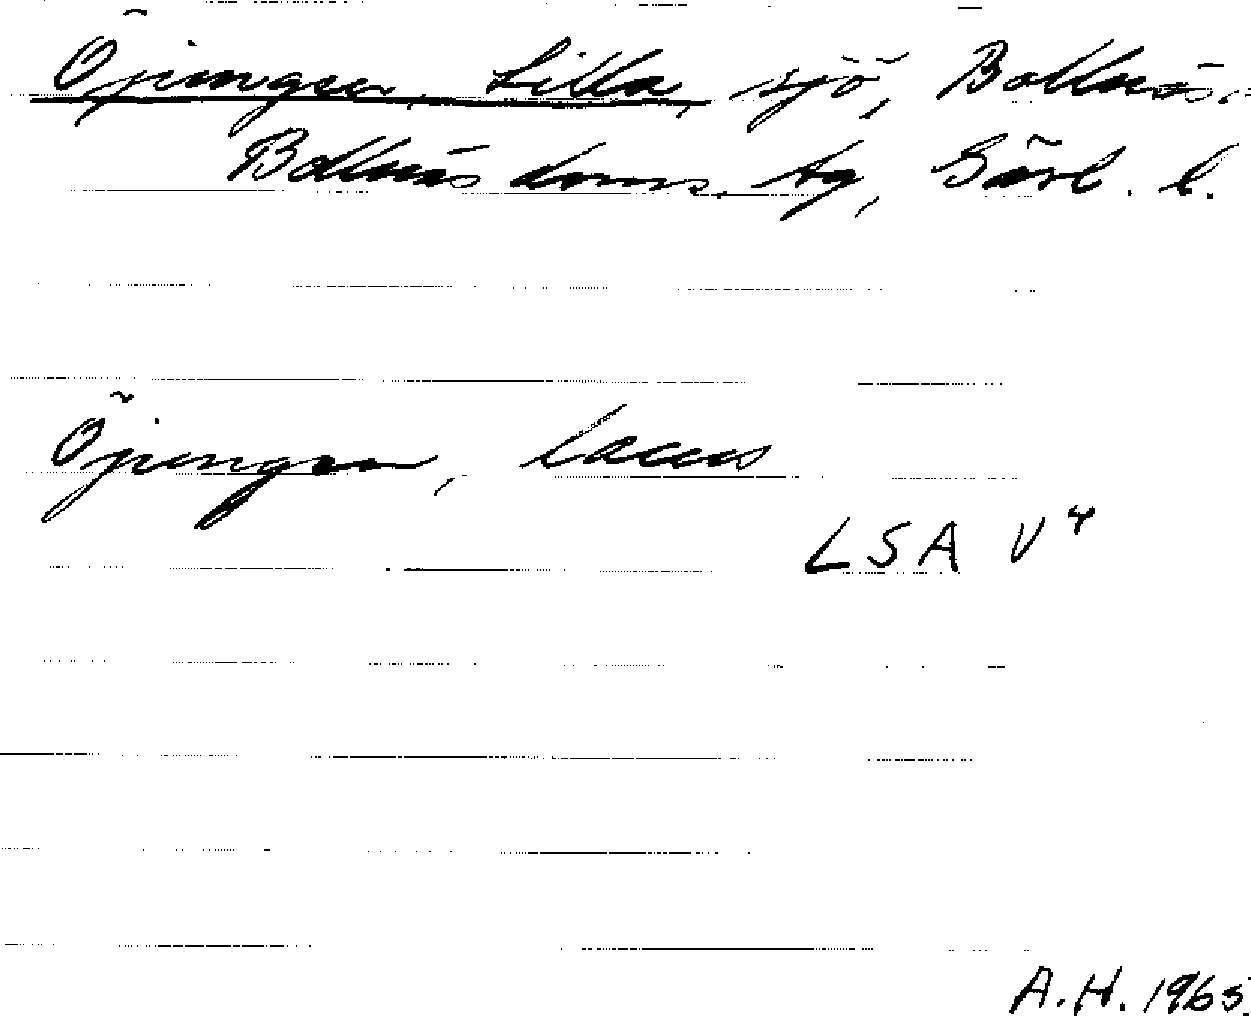 Öjungen, Lilla, sjö, Bollnäs.
Bollnäs doms. tg, Gävl. l.
Öjungen, Lacus
LSA V 4
A.H. 1965.